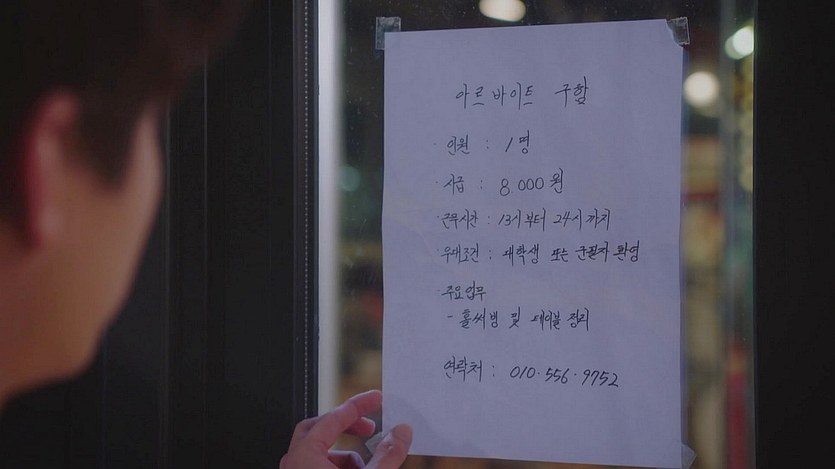 아르바이트 구함
· 인원 : 1명
· 시급 : 8000원
· 근무시간 : 13시부터 24시까지
· 우대조건 : 대학생 또는 군필자 환영
· 주요업무
- 홀써빙 및 테이블 정리
연락처 : 010·556·9752